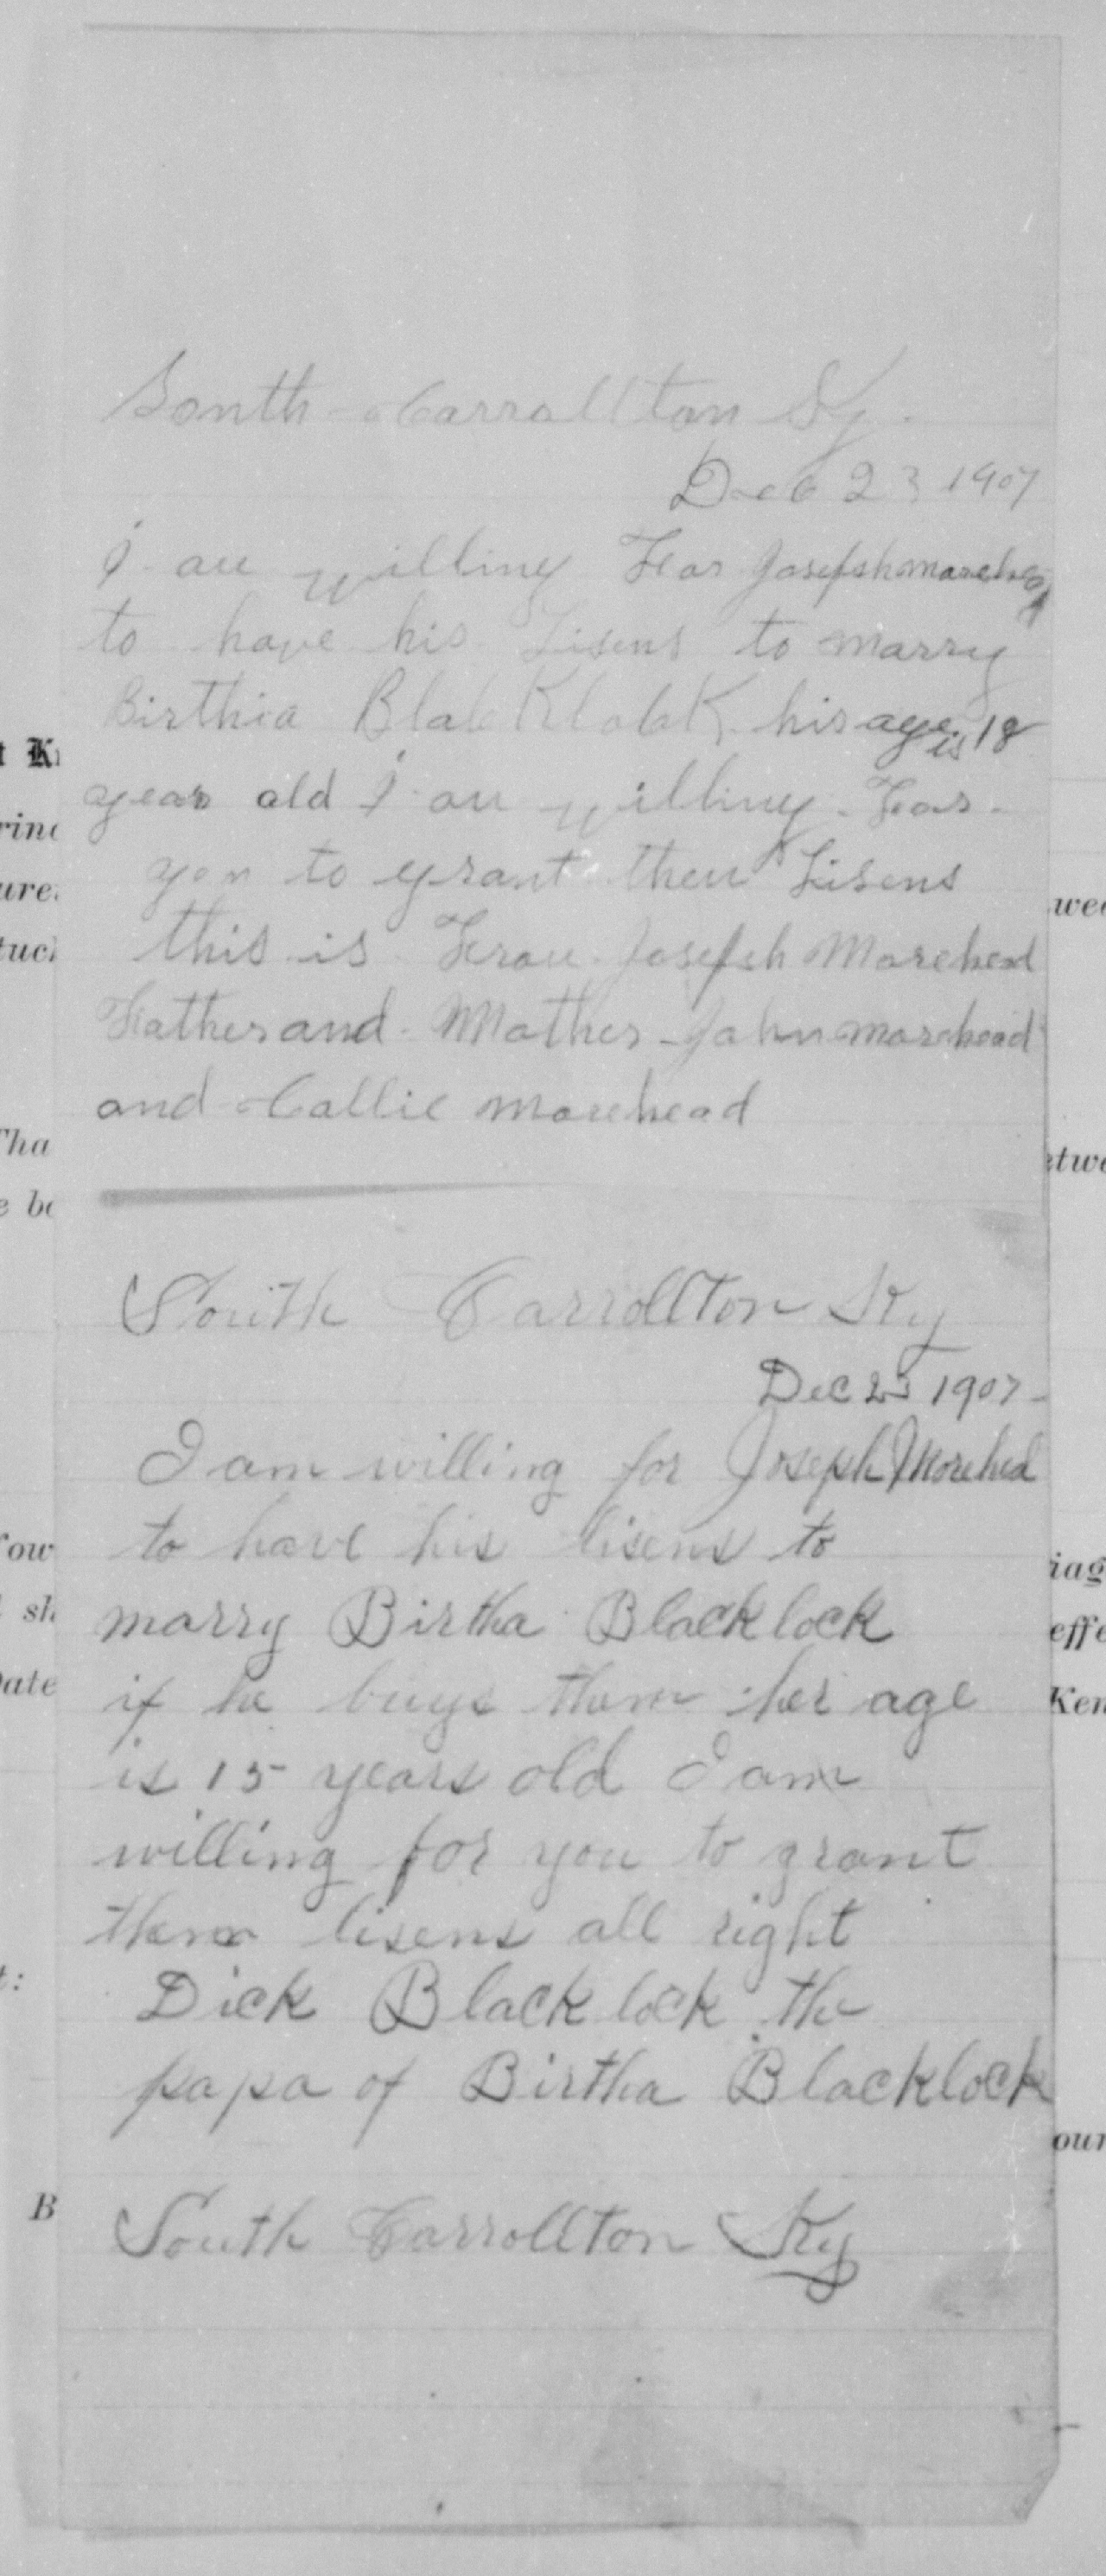 South Carrallton Ky.
Dec 23 1907
I au willing Foar Joseph morehead
to have his Lisens to marry
Birthia Blak Klalk his age is 18
year old I au willing Foar
you to grant them Lisens
this is Frau Joseph Morehead
Father and Mother John morehead
and Callie morehead
South Carrollton Ky
Dec 23 1907
I am willing for Joseph Morehead
to have his lisens to
marry Birtha Blacklock
if he buys them her age
is 15 years old I am
willing for you to grant
them lisens all right
Dick Blacklock the
papa of Birtha Blacklock
South Carrollton Ky